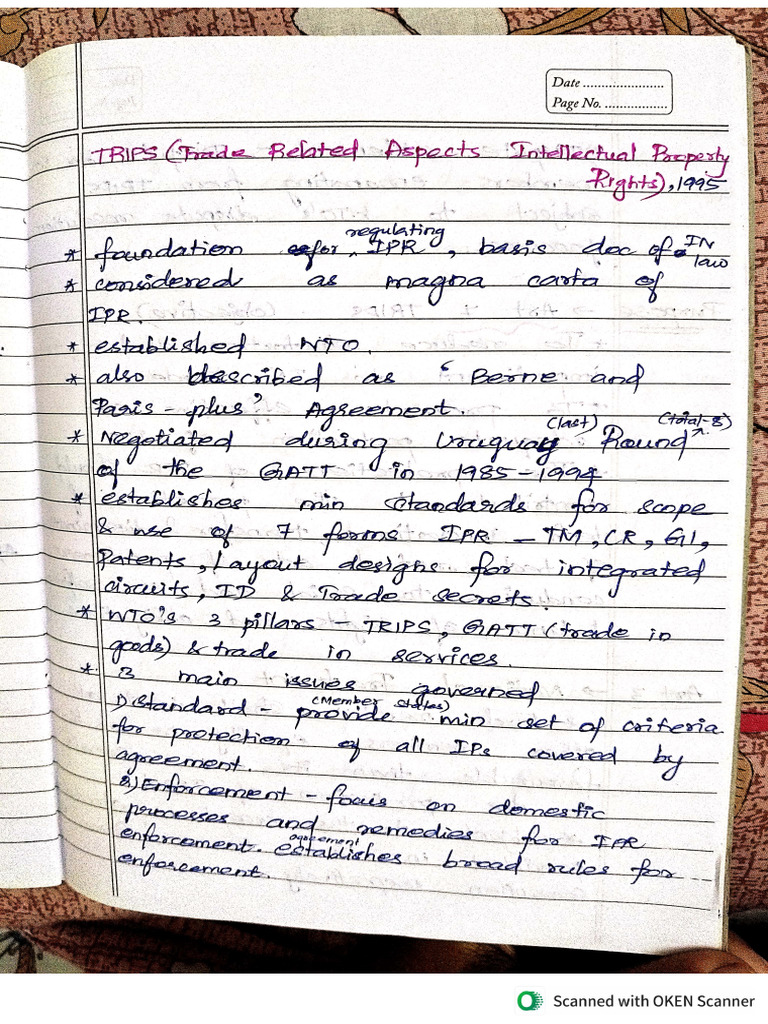 Date ........................
Page No. ...................
TRIPS (Trade Related Aspects Intellectual Property
Rights), 1995
* foundation for regulating IPR, basis doc of IN law
* considered as magna carta of
IPR.
* established WTO.
* also described as 'Berne and
Paris-plus' Agreement.
* Negotiated during Uruguay (last) Round (total-8)
of the GATT in 1985-1994
* establishes min standards for scope
& use of 7 forms IPR - TM, CR, GI,
Patents, Layout designs for integrated
circuits, ID & Trade secrets.
* WTO's 3 pillars - TRIPS, GATT (trade in
goods) & trade in services.
* 3 main issues governed
1) Standard - (Member states) provide min set of criteria
for protection of all IPs covered by
agreement.
2) Enforcement - focus on domestic
processes and remedies for IPR
enforcement. agreement establishes broad rules for
enforcement.
Scanned with OKEN Scanner